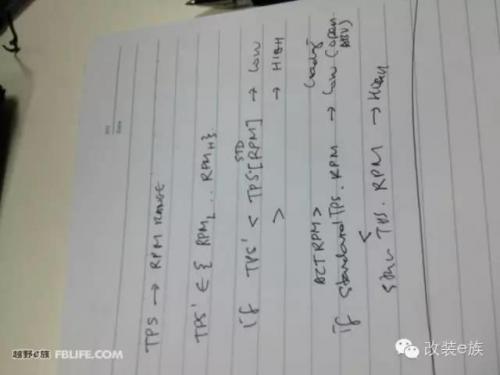 TPS → RPM RANGE
TPS' ∈ { RPM_L ... RPM_H }
if TPS' < TPS_STD [RPM] → LOW
> → HIGH
ACT RPM >
if standard TPS. RPM → Low (open
< TPS. RPM → HIGH
越野e族 FBLIFE.COM
改装e族